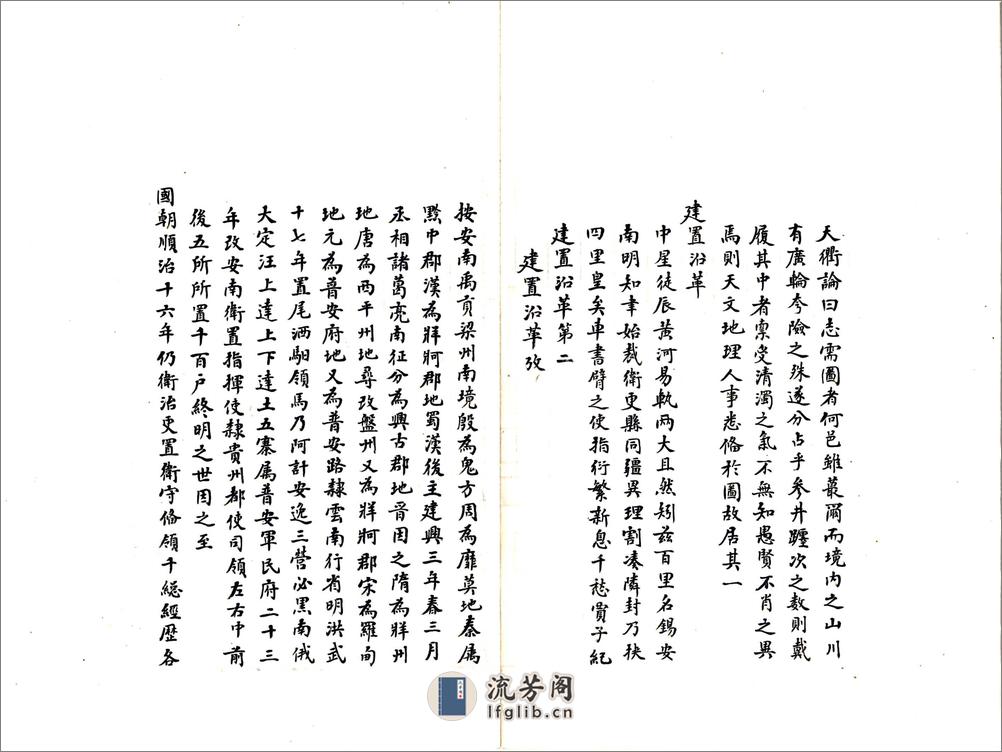 天衢論曰志需圖者何邑雖蕞爾而境內之山川
有廣輪夸險之殊遂分占乎參井躔次之數則戴
履其中者稟受清濁之氣不無知愚賢不肖之異
焉則天文地理人事悉俻於圖故居其一
建置沿革
中星徒辰黃河易軌兩大且然矧兹百里名錫安
南明知聿始裁衛更縣同疆異理割湊隣封乃秧
四里皇矣車書臂之使指衍繁新息千秾賈子紀
建置沿革第二
建置沿革攷
按安南禹貢梁州南境殷為鬼方周為靡莫地秦属
黔中郡漢為牂牁郡地蜀漢後主建興三年春三月
丞相諸葛亮南征分為興古郡地晉因之隋為牂州
地唐為西平州地尋改盤州又為牂牁郡宋為羅甸
地元為普安府地又為普安路隸雲南行省明洪武
十七年置尾洒馹領馬乃阿計安逸三營必黑南俄
大定汪上達上下達土五寨属普安軍民府二十三
年改安南衛置指揮使隸貴州都使司領左右中前
後五所所置千百户終明之世因之至
國朝順治十六年仍衛治更置衛守俻領千総經歷各
流芳阁
lfglib.cn